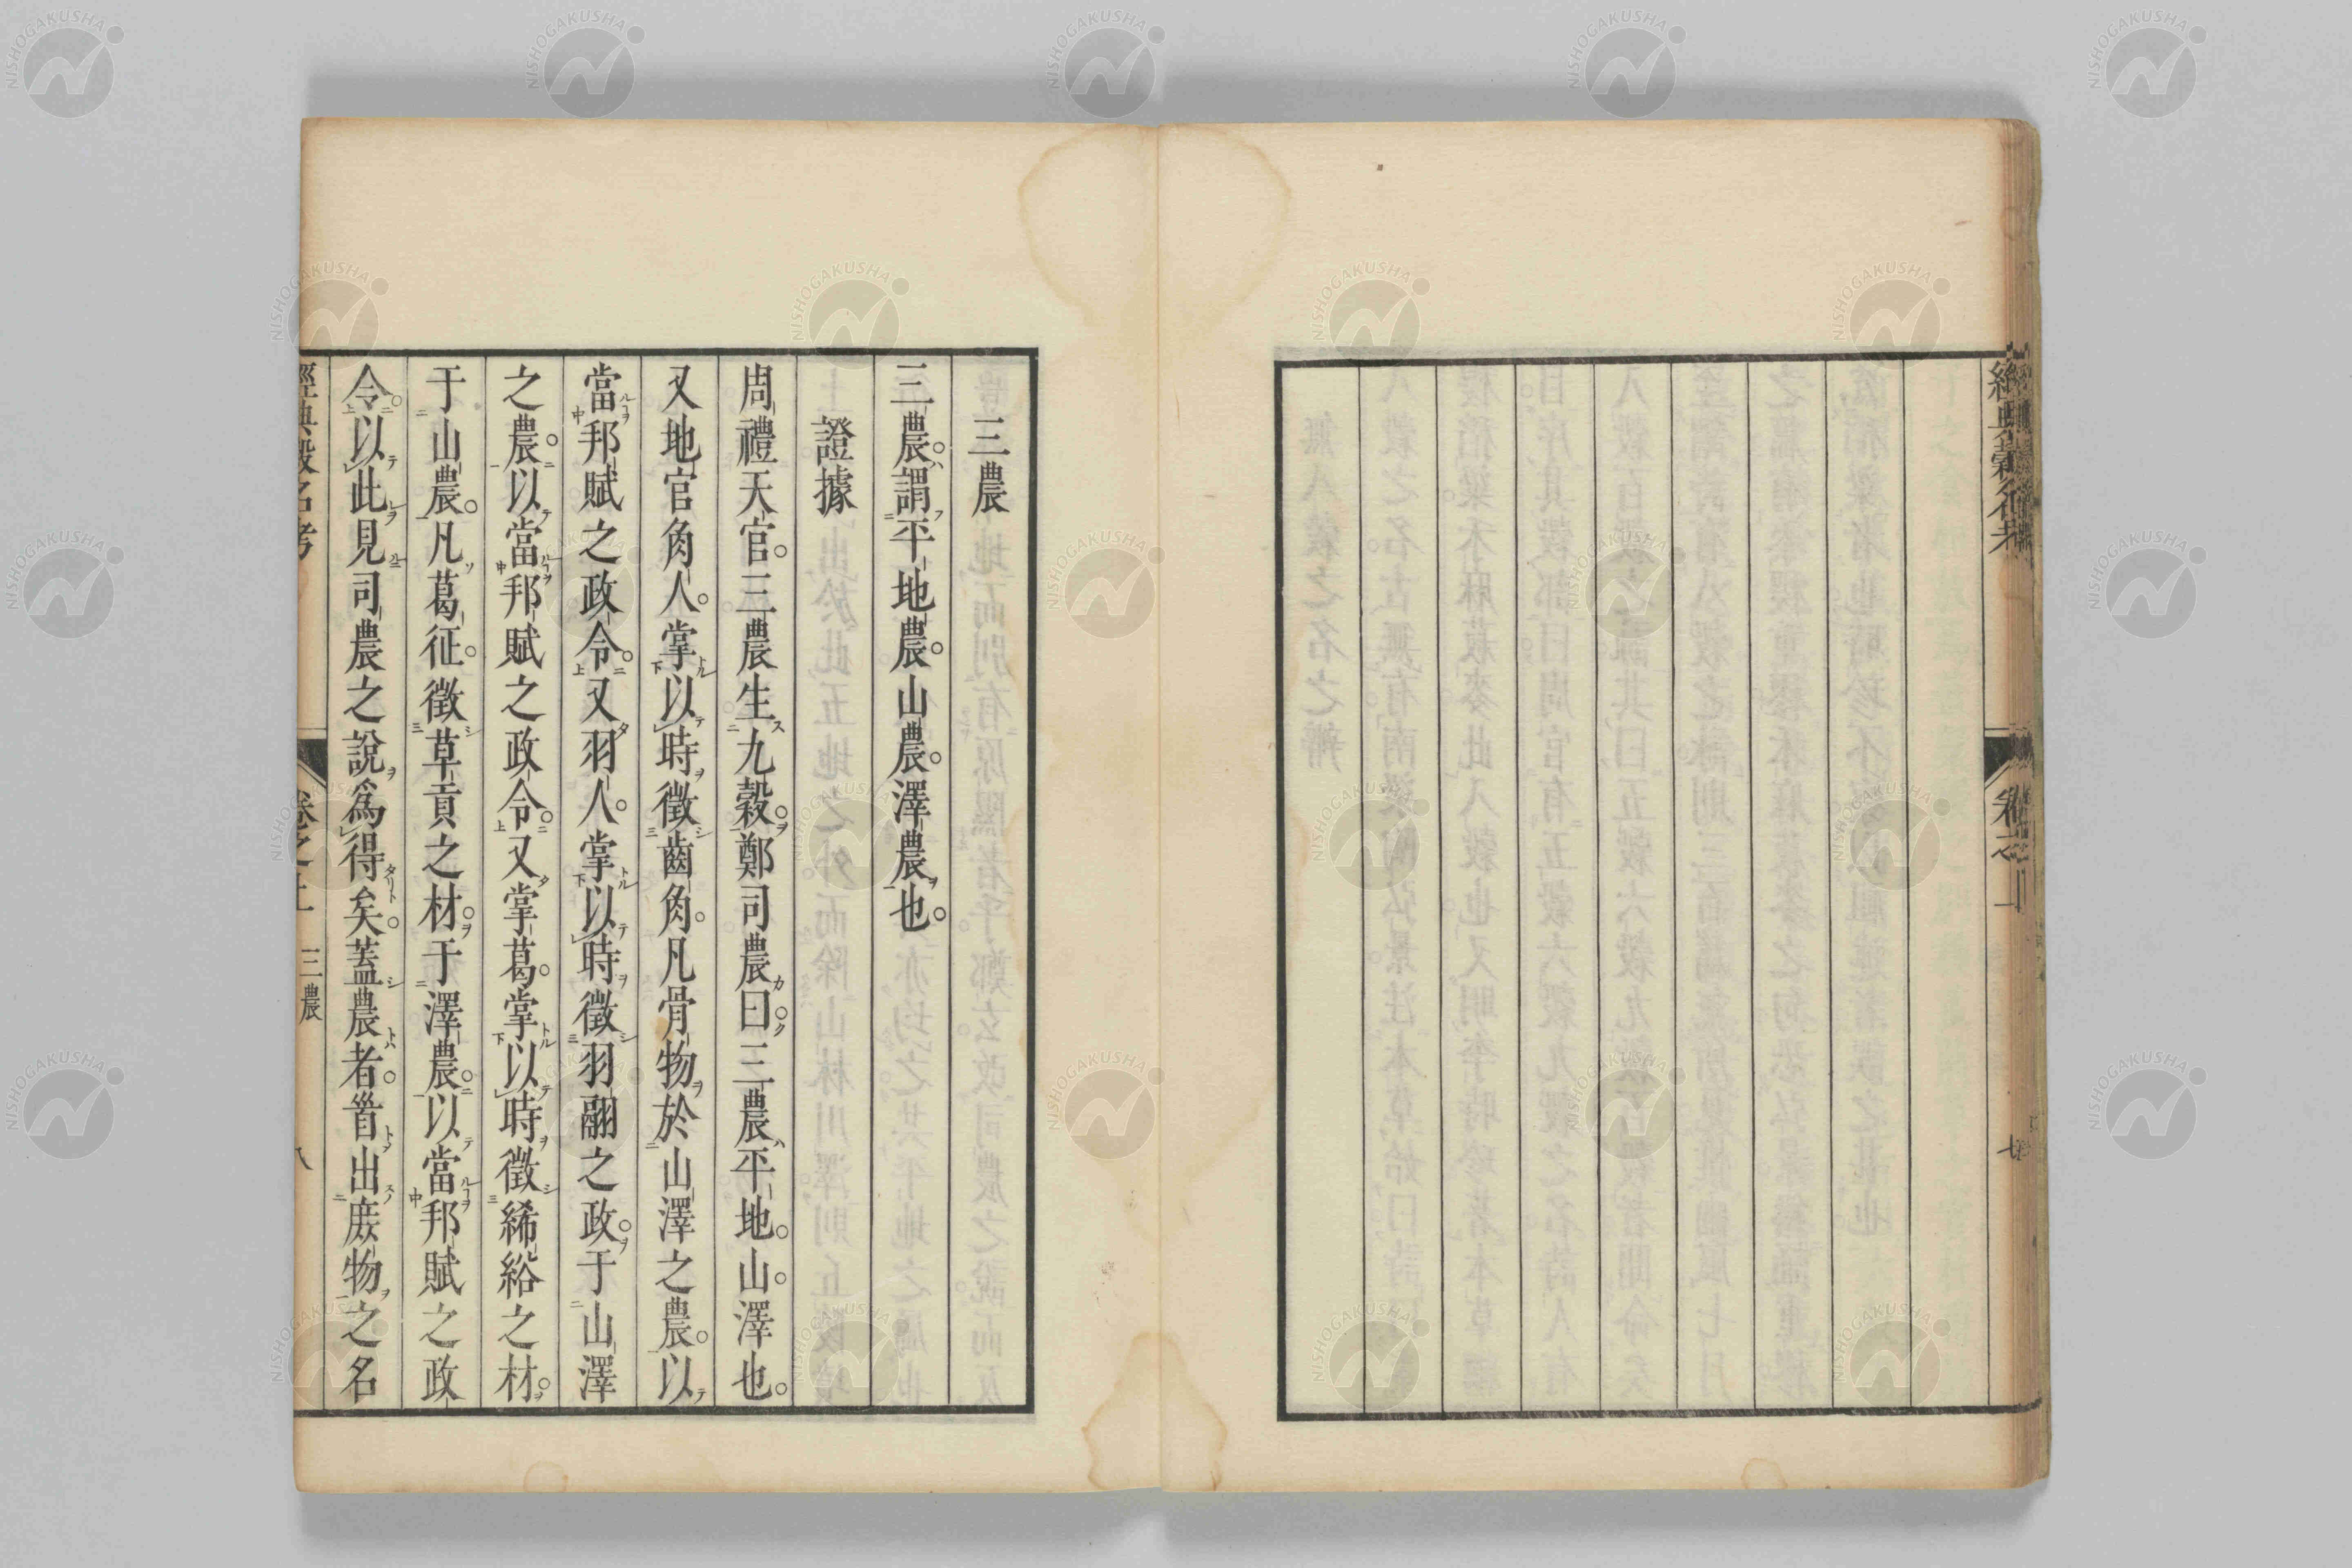 三農
三農。謂平地農。山農。澤農也。
證據
周禮天官。三農生九穀。鄭司農曰。三農平地。山。澤也。
又地官角人。掌以時徵齒角。凡骨物於山澤之農。以
當邦賦之政令。又羽人。掌以時徵羽翮之政。于山澤
之農。以當邦賦之政令。又掌葛。掌以時徵絺綌之材。
于山農。凡葛征。徵草貢之材。于澤農。以當邦賦之政
令。以此見司農之說爲得矣。蓋農者。首出庶物之名
經典穀名考 卷之上 三農 八
NISHOGAKUSHA